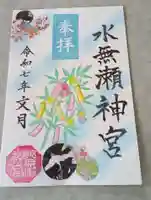 奉拝
水無瀬神宮
令和七年文月